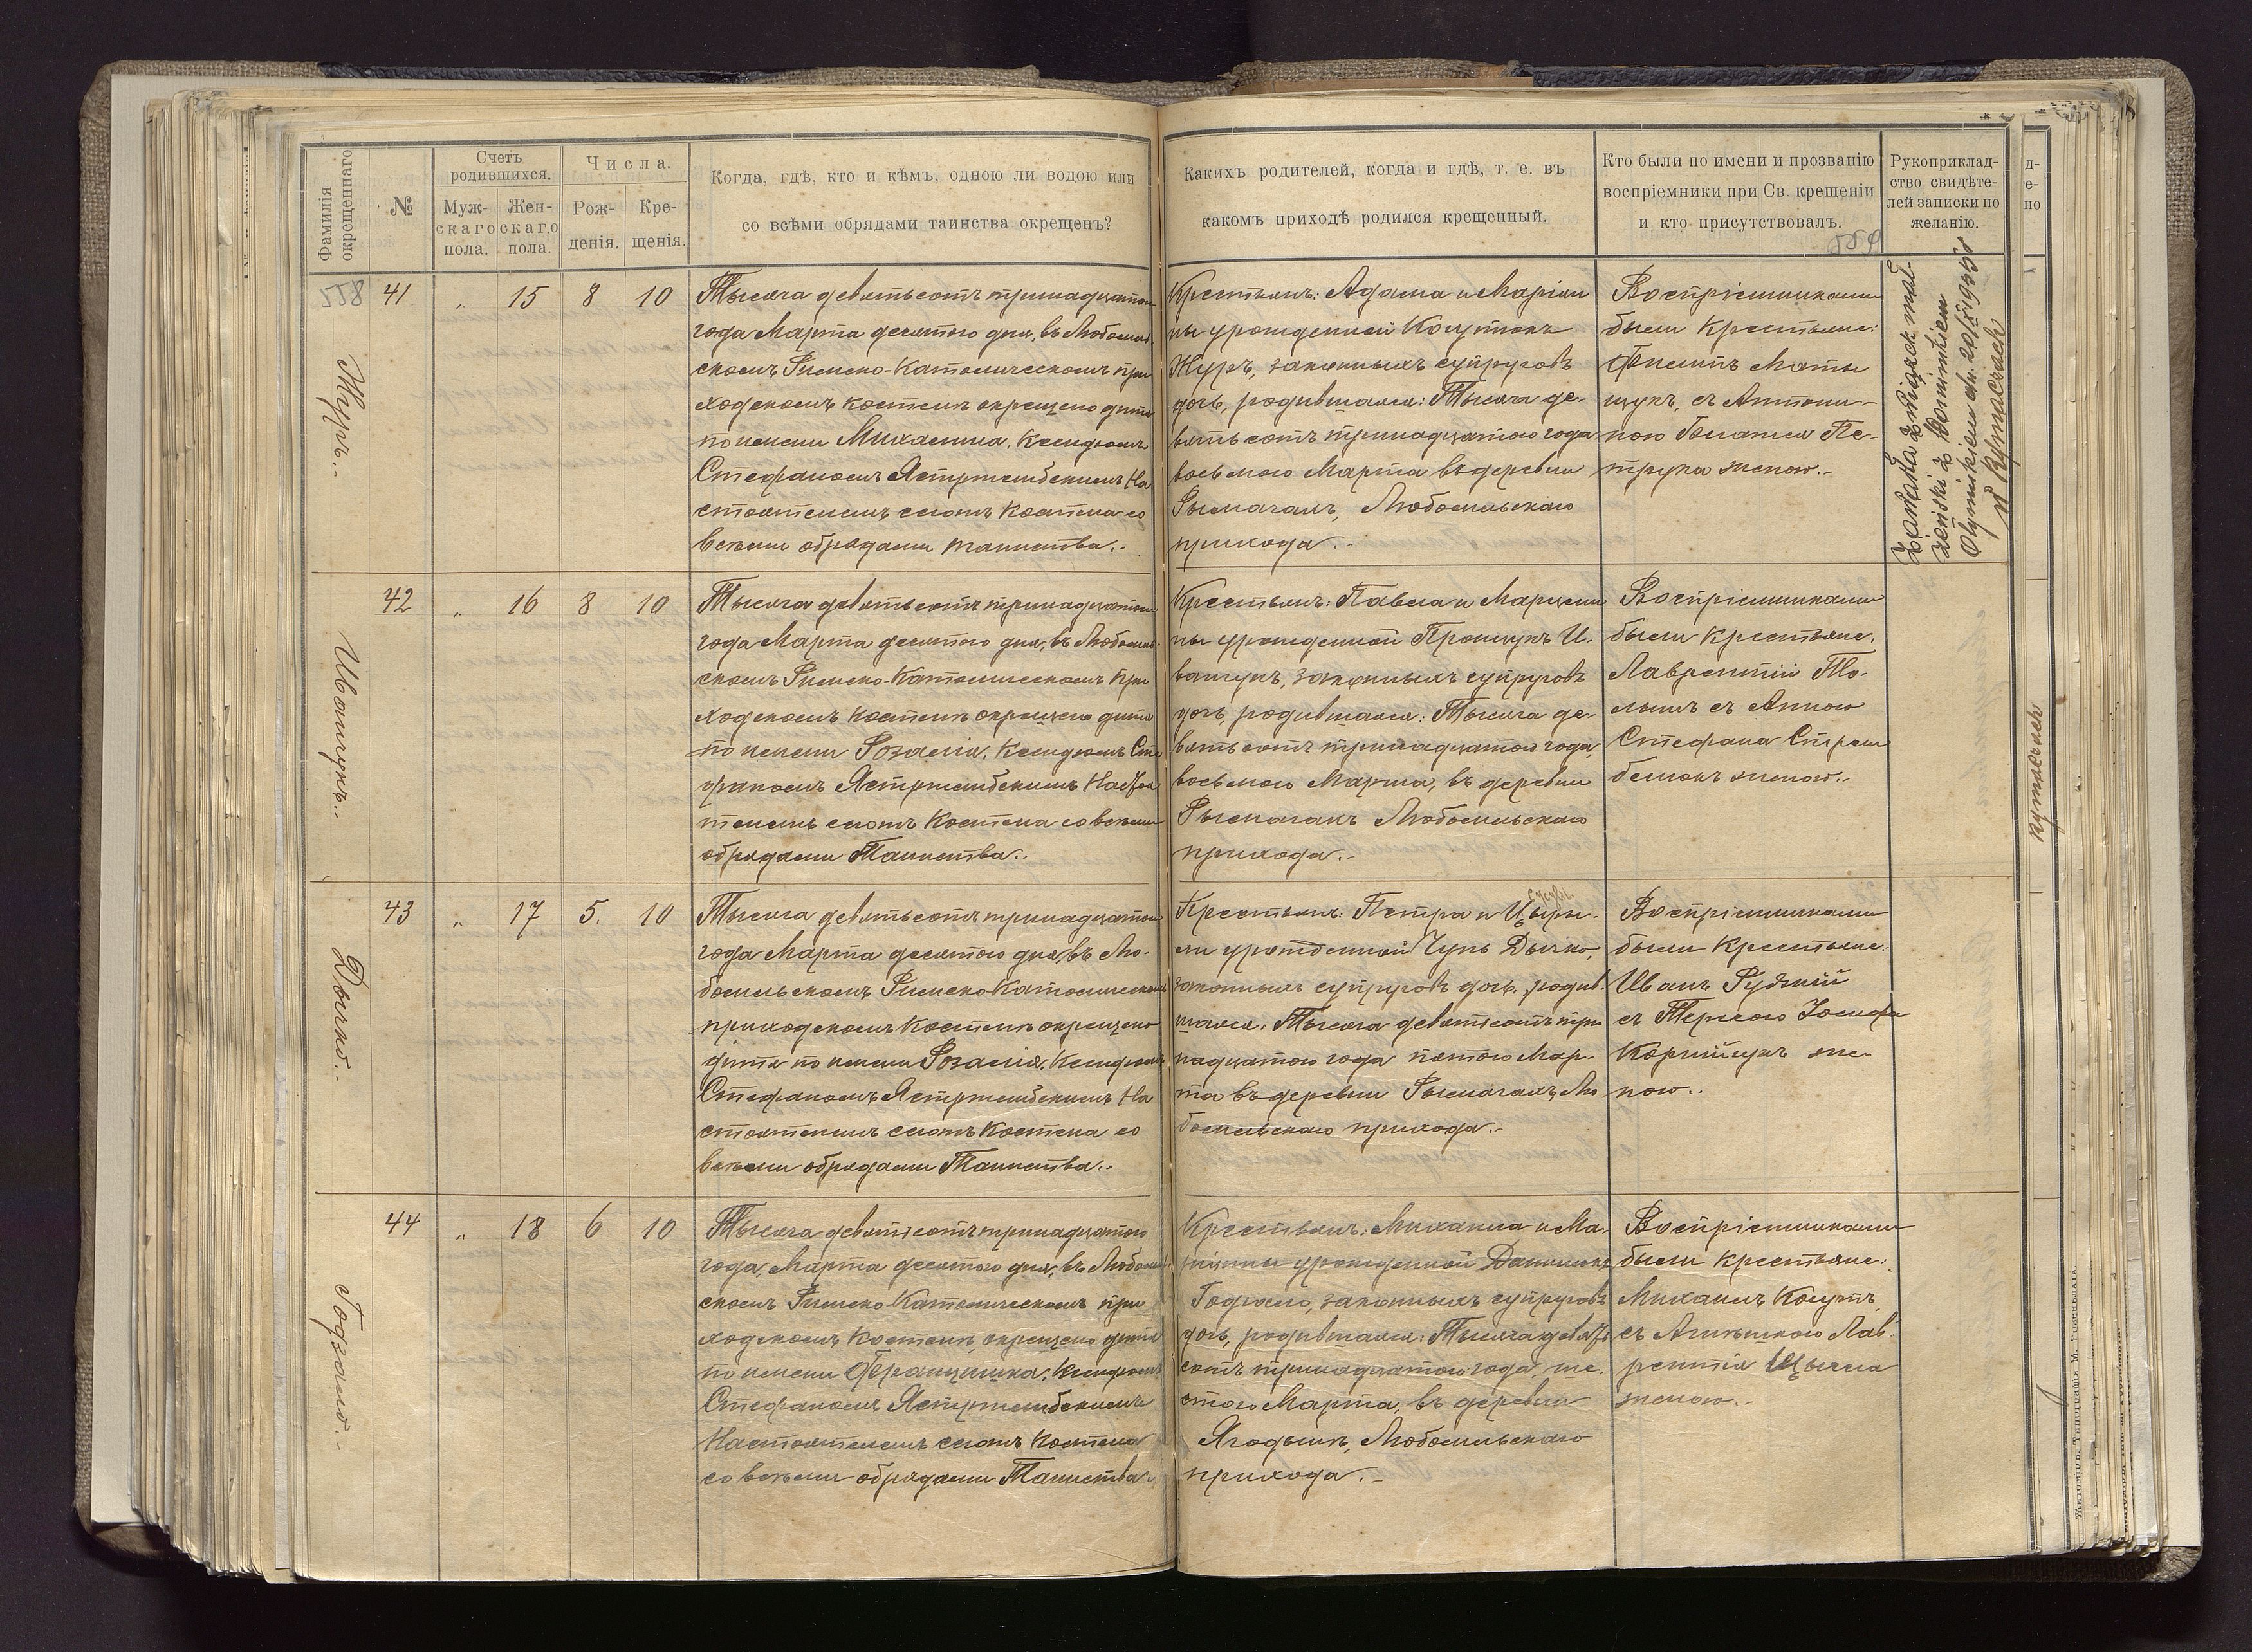 Фамилія окрещеннаго
№
Счетъ родившихся.
Мужскаго пола.
Женскаго пола.
Числа.
Рожденія.
Крещенія.
Когда, гдѣ, кто и кѣмъ, одною ли водою или
со всѣми обрядами таинства окрещенъ?
Какихъ родителей, когда и гдѣ, т. е. въ
какомъ приходѣ родился крещенный.
Кто были по имени и прозванію
воспріемники при Св. крещеніи
и кто присутствовалъ.
Рукоприклад-
ство свидѣте-
лей записки по
желанію.
558
559
Журъ.
41 " 15 8 10
Тысяча девятьсотъ тринадцатаго
года Марта десятого дня, въ Любомль
скомъ Римско-Католическомъ при
ходскомъ костелѣ окрещено дитя
по имени Михалина, Ксендзомъ
Стефаномъ Ястржембскимъ На
стоятелемъ сего костела со
всѣми обрядами таинства.
Крестьянъ: Адама и Маріан
ны урожденной Косутюкъ
Журъ, законныхъ супруговъ
дочь, родившаяся: Тысяча де-
вятьсотъ тринадцатого года
восьмого Марта въ деревни
Рымачахъ, Любомльскаго
прихода.
Воспріемниками
были Крестьяне:
Филипъ Маты
щукъ, съ Антони-
ною Игнатія Пе-
трука женою.
Związek mał-
żeński z Dominikiem
w Rymaczach
Иванчукъ.
42 " 16 8 10
Тысяча девятьсотъ тринадцатаго
года Марта десятого дня, въ Любомль
скомъ Римско-Католическомъ при
ходскомъ костелѣ окрещено дитя
по имени Розалія, Ксендзомъ Сте
фаномъ Ястржембскимъ Настоя
телемъ сего костела со всѣми
обрядами Таинства.
Крестьянъ: Павла и Марцели
ны урожденной Процукъ И-
ванчукъ, законныхъ супруговъ
дочь, родившаяся: Тысяча де-
вятьсотъ тринадцатого года,
восьмого Марта, въ деревни
Рымачахъ Любомльскаго
прихода.
Воспріемниками
были Крестьяне:
Лаврентій
съ Анною
Стефана
женою.
Дычко.
43 " 17 5. 10
Тысяча девятьсотъ тринадцатаго
года Марта десятого дня, въ Лю-
бомльскомъ Римско Католическомъ
приходскомъ костелѣ окрещено
дитя по имени Розалія, Ксендзомъ
Стефаномъ Ястржембскимъ На
стоятелемъ сего костела со
всѣми обрядами Таинства.
Крестьянъ: Петра и Цыри-
ли урожденной Чупь Дычко,
законныхъ супруговъ дочь, родив-
шаяся: Тысяча девятьсотъ три
надцатого года пятого Мар-
та въ деревни Рымачахъ, Лю
бомльскаго прихода.
Воспріемниками
были Крестьяне:
Иванъ Рудзкій
съ Терезою Іосифа
Корнійчукъ же-
ною.
44 " 18 6 10
Тысяча девятьсотъ тринадцатого
года, Марта десятого дня, въ Любомль
скомъ Римско Католическомъ при
ходскомъ костелѣ, окрещено дитя
по имени Францишка, Ксендзомъ
Стефаномъ Ястржембскимъ
Настоятелемъ сего костела
со всѣми обрядами Таинства
Крестьянъ: Михаила и Ма-
ріанны урожденной Данилюкъ
законныхъ супруговъ
дочь, родившаяся: Тысяча девять
сотъ тринадцатого года, ше-
стого Марта, въ деревни
Ягодынѣ, Любомльскаго
прихода.
Воспріемниками
были крестьяне:
Михаилъ Косутъ
съ Агнѣшкою Лав-
рентія
женою.